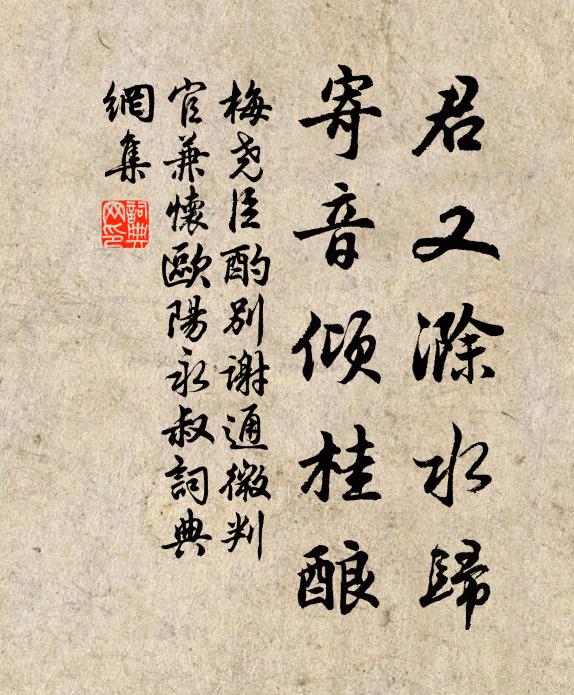 君又滁水歸
寄音傾桂酿
梅尧臣酌别谢通微判
官兼懷歐陽永叔詞典
網集
詞典
网印